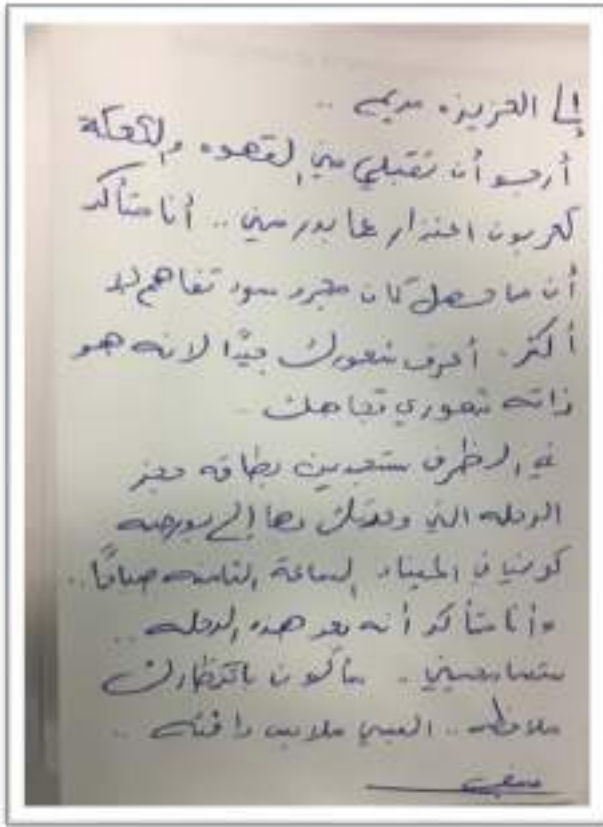 إلى العزيزه مريم ..
أرجو أن تقبلي مني القهوه والكعكة
كعربون اعتذار عما بدر مني .. أنا متأكد
أن ما حصل كان مجرد سوء تفاهم لا
أكثر . أعرف شعورك جيدًا لانه هو
ذاته شعوري تجاهك ..
في الظرف ستجدين بطاقه حجز
الرحله التي وعدتك بها إلى
كوني في الميناء الساعة الثامنه صباحًا ..
وأنا متأكد أنه بعد هذه الرحله ..
ستسامحيني .. سأكون بانتظارك
ملاحظه .. البسي ملابس دافئه ..